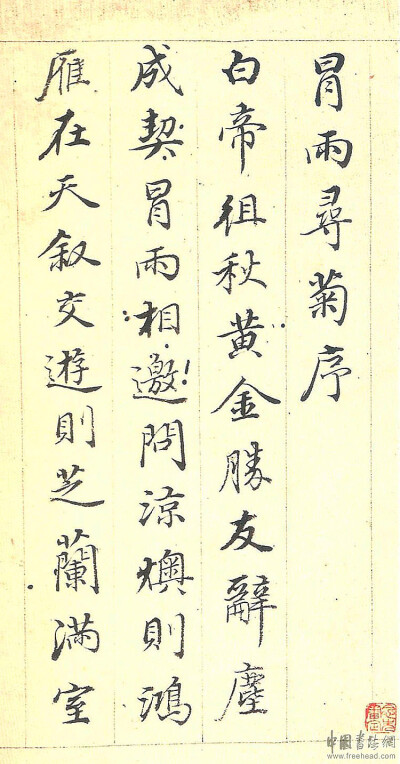 冒雨尋菊序
白帝徂秋黃金勝友辭塵
成契冒雨相邀問涼燠則鴻
雁在天叙交遊則芝蘭滿室
中國書法網
www.freehead.com